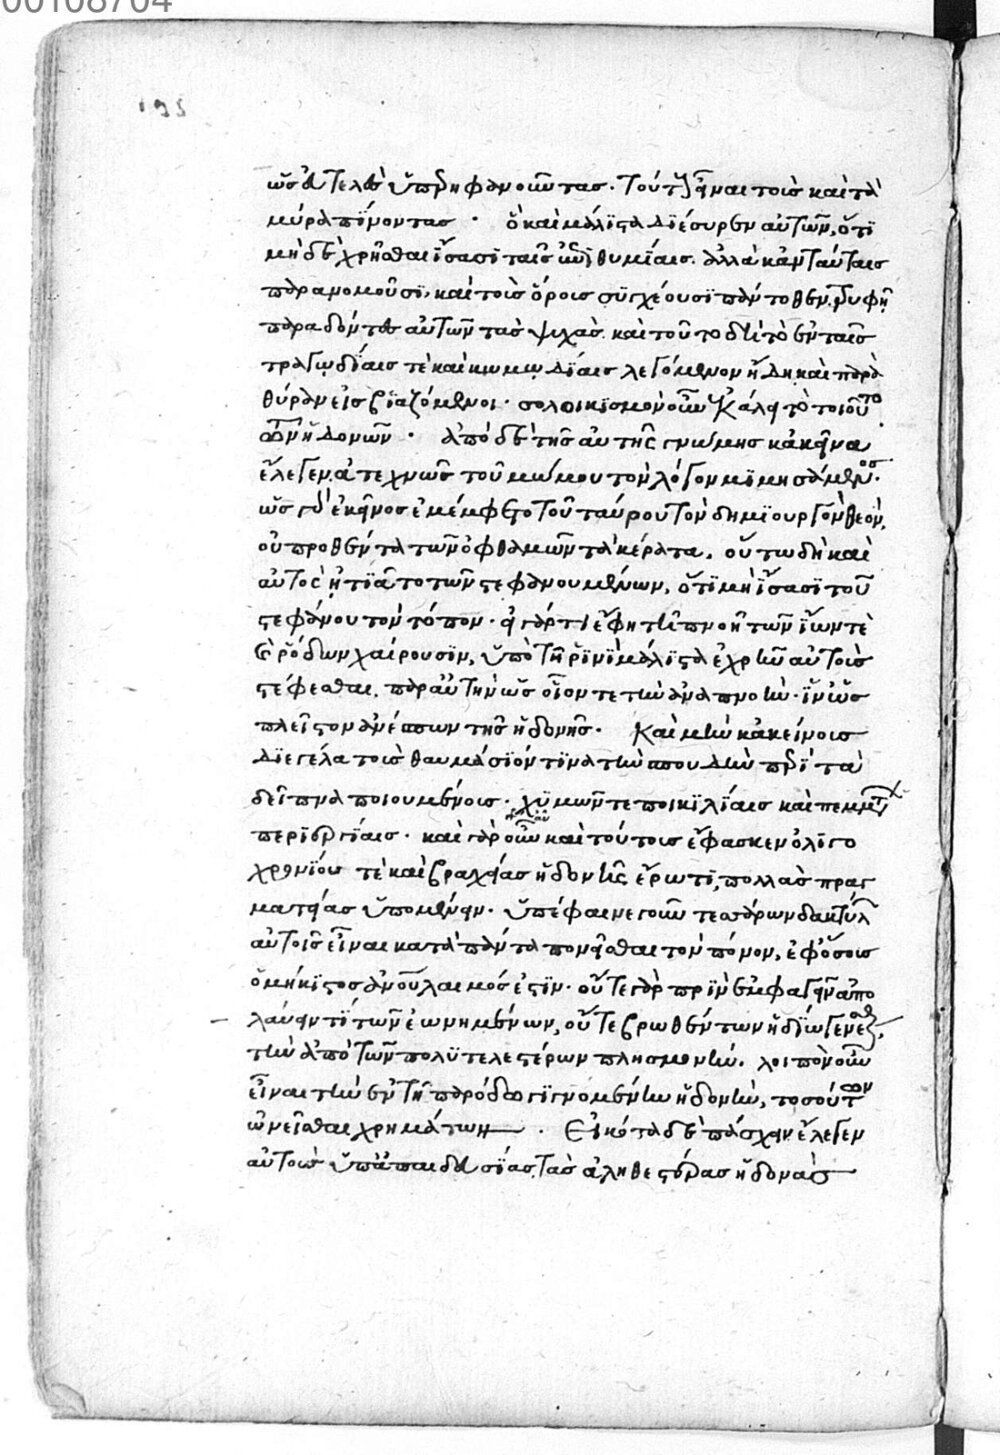 00108704
195
ὡς εὐτελεῖς ὑπερηφανοῦντας. τούτους εἶναι τοὺς καὶ τὰ
μύρα πίνοντας · ὃ καὶ μάλιστα διέσυρεν αὐτῶν, ὅτι
μηδὲ χρῆσθαι ἴσασι ταῖς ἐπιθυμίαις. ἀλλὰ κἀν ταύταις
παρανομοῦσι, καὶ τοὺς ὅρους συγχέουσι πάντοθεν τρυφῇ
παραδόντες αὐτῶν τὰς ψυχὰς. καὶ τοῦτο δὴ τὸ ἐν ταῖς
τραγῳδίαις τὲ καὶ κωμῳδίαις λεγόμενον ἤδη καὶ παρὰ
θύραν εἰσβιαζόμενοι · σολοικισμὸν οὖν ἐκάλει τὸ τοιοῦτο
τῶν ἡδονῶν · ἀπὸ δὲ τῆς αὐτῆς γνώμης κἀκεῖνα
ἔλεγεν. ἀτεχνῶς τοῦ μώμου τὸν λόγον μιμησάμενος.
ὡς γὰρ ἐκεῖνος ἐμέμφετο τοῦ ταύρου τὸν δημιουργὸν θεόν,
οὐ προθέντα τῶν ὀφθαλμῶν τὰ κέρατα, οὕτω δὴ καὶ
αὐτὸς ᾐτιᾶτο τῶν στεφανουμένων, ὅτι μὴ ἴσασι τοῦ
στεφάνου τὸν τόπον. εἰ γάρ τι ἔφη τῇ πνοῇ τῶν ἴων τὲ
καὶ ῥόδων χαίρουσιν, ὑπὸ τῇ ῥινὶ μάλιστα ἐχρῆν αὐτοὺς
στέφεσθαι. παρ αὐτὴν ὡς οἷον τε τὴν ἀναπνοὴν. ἵν ὡς
πλεῖστον ἀνέσπων τῆς ἡδονῆς. Καὶ μὴν κἀκείνους
διεγέλα τοὺς θαυμάσιόν τινα τὴν σπουδὴν περὶ τὰ
δεῖπνα ποιουμένους. χυμῶν τε ποικιλίαις καὶ πεμμάτων
περιεργίαις. καὶ γὰρ οὖν καὶ τούτους ἔφασκεν ὀλιγο
χρονίου τὲ καὶ βραχείας ἡδονῆς ἔρωτι, πολλὰς πραγ
ματείας ὑπομένειν. ὑπέφαινε γοῦν τεσσάρων δακτύλων
αὐτοῖς εἶναι κατὰ πάντα πονεῖσθαι τὸν πόνον, ἐφ ὅσους
ὁ μήκιστος ἀνθρώπου λαιμός ἐστιν. οὔτε γὰρ πρὶν ἐμφαγεῖν ἀπο
λαύειν τι τῶν ἐωνημένων, οὔτε βρωθέντων ἡδίω γενέσθαι
τὴν ἀπὸ τῶν πολυτελεστέρων πλησμονήν. λοιπὸν οὖν
εἶναι τὴν ἐν τῇ παρόδῳ γιγνομένην ἡδονὴν, τοσούτων
ὠνεῖσθαι χρημάτων. Εἰκότα δὲ πάσχειν ἔλεγεν
αὐτοὺς ὑπ ἀπαιδευσίας, τὰς ἀληθεστέρας ἡδονὰς